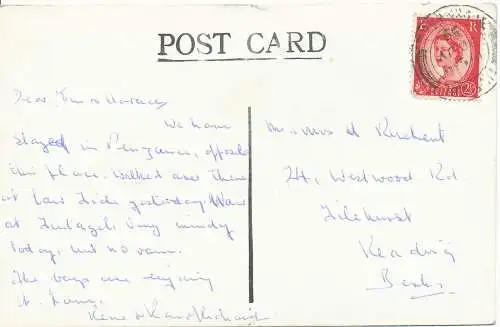 POST CARD
E R
POSTAGE
Dear
We have
stayed in Penzance, opposite
this place. Walked over there
at low tide yesterday. Were
at Tintagel. Very windy
today, but no rain.
The boys are enjoying
it.
Rene &
Mr & Mrs H
24, Westwood Rd
Tilehurst
Reading
Berks.